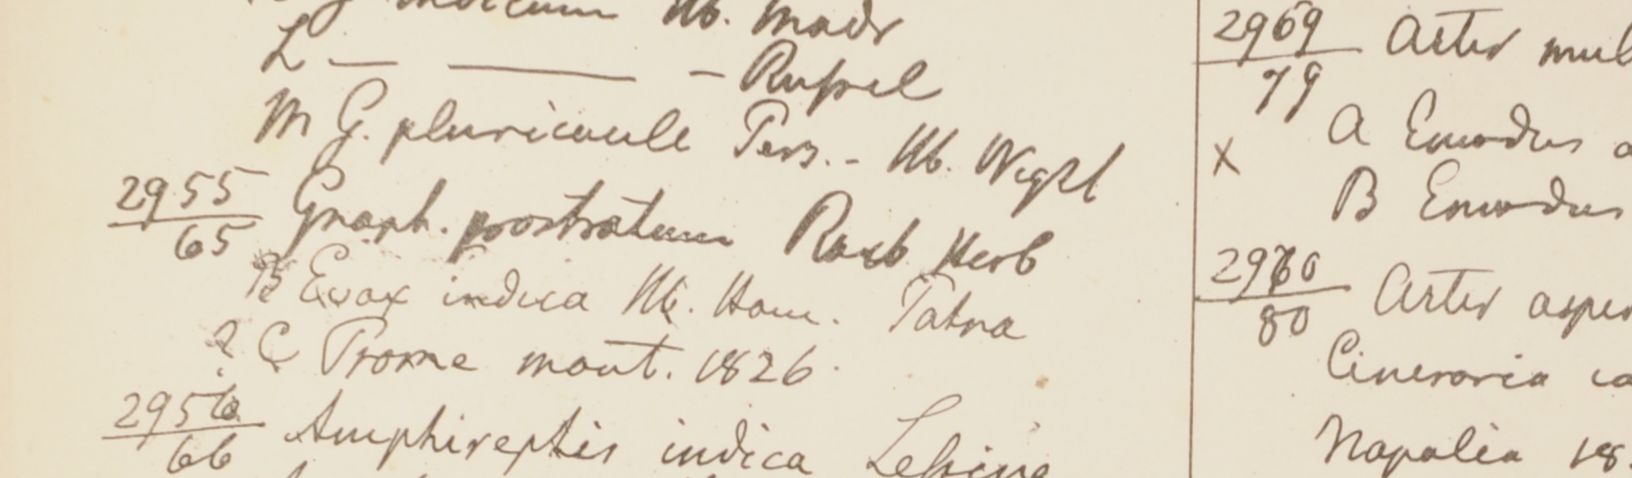 indicum Hb. Madr
L — — — Rupel
M G. pluricaule Pers. - Hb. Wight
2955 Gnaph. prostratum Roxb Herb
65
B Evax indica Hb. Ham. Patna
? C Prome mont. 1826
2956 Amphirephis indica Lessing
66
2969 Aster
79
A Emodus
X
B Emodus
2980 Aster
80
Cineraria
Napalia 18